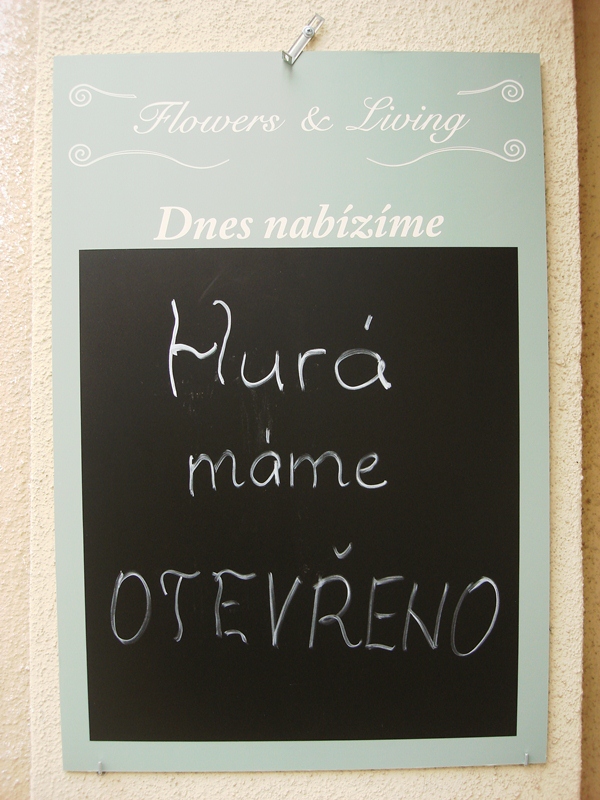 Flowers & Living
Dnes nabízíme
Hurá
máme
OTEVŘENO